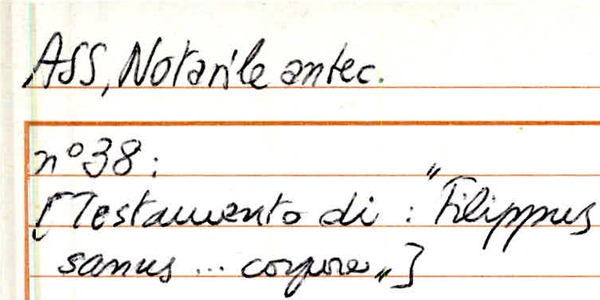 ASS, Notarile antec.
n° 38:
[Testamento di: "Filippus
sanus... corpore"]